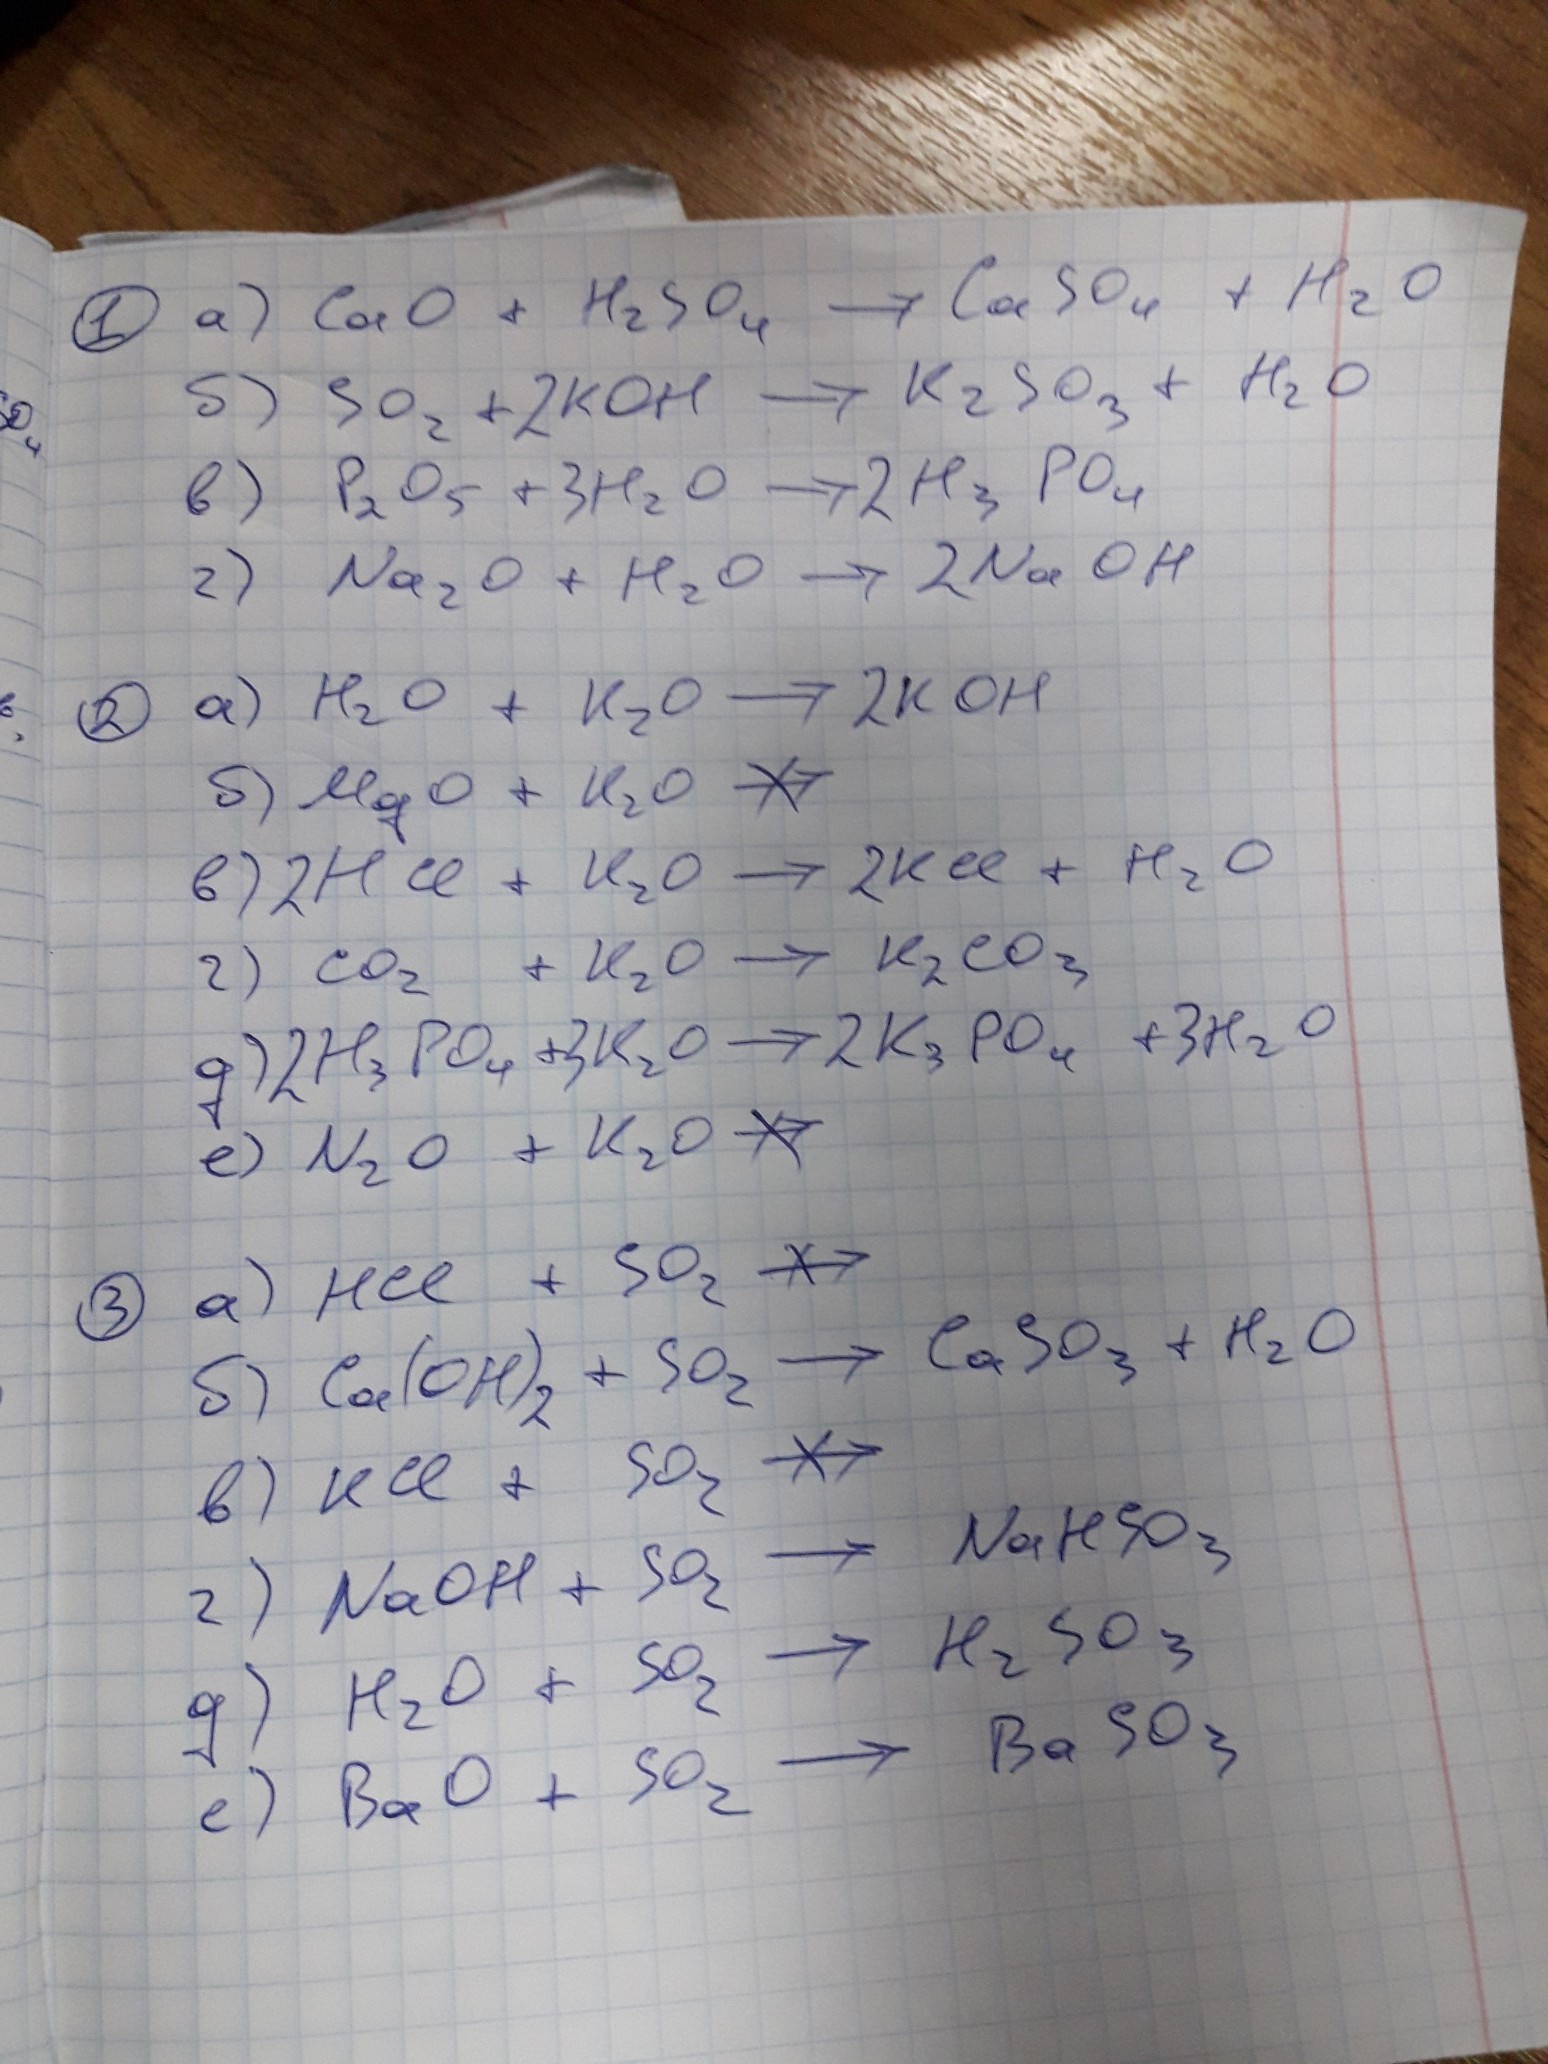 ① а) CaO + H₂SO₄ → CaSO₄ + H₂O
б) SO₂ + 2KOH → K₂SO₃ + H₂O
в) P₂O₅ + 3H₂O → 2H₃PO₄
г) Na₂O + H₂O → 2NaOH
② а) H₂O + K₂O → 2KOH
б) MgO + K₂O ↛
в) 2HCl + K₂O → 2KCl + H₂O
г) CO₂ + K₂O → K₂CO₃
д) 2H₃PO₄ + 3K₂O → 2K₃PO₄ + 3H₂O
е) N₂O + K₂O ↛
③ а) HCl + SO₂ ↛
б) Ca(OH)₂ + SO₂ → CaSO₃ + H₂O
в) KCl + SO₂ ↛
г) NaOH + SO₂ → NaHSO₃
д) H₂O + SO₂ → H₂SO₃
е) BaO + SO₂ → BaSO₃